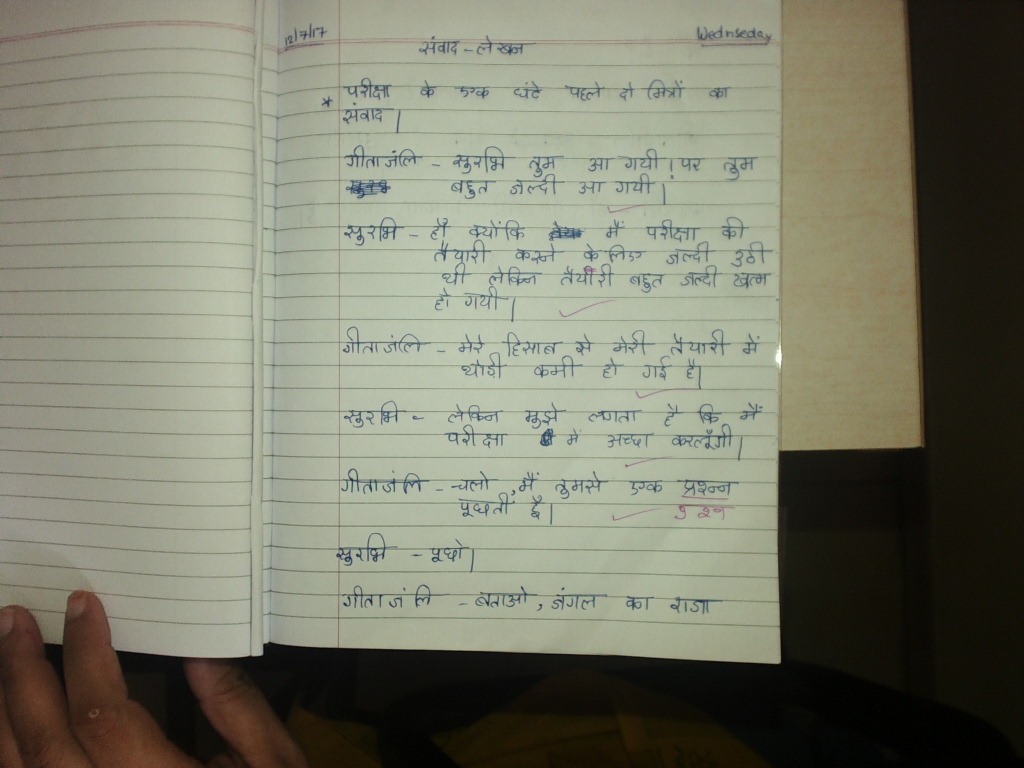 12/7/17 Wednseday
संवाद - लेखन
* परीक्षा के एक घंटे पहले दो मित्रों का
संवाद।
गीताजंलि - सुरभि तुम आ गयी। पर तुम
बहुत जल्दी आ गयी।
सुरभि - हाँ क्योंकि मैं परीक्षा की
तैयारी करने के लिए जल्दी उठी
थी लेकिन तैयारी बहुत जल्दी खत्म
हो गयी।
गीताजंलि - मेरे हिसाब से मेरी तैयारी में
थोड़ी कमी हो गई है।
सुरभि - लेकिन मुझे लगता है कि मैं
परीक्षा में अच्छा करलूँगी।
गीताजंलि - चलो, मैं तुमसे एक प्रश्न्न
पूछती हूँ। प्रश्न
सुरभि - पूछो।
गीताजंलि - बताओ, जंगल का राजा